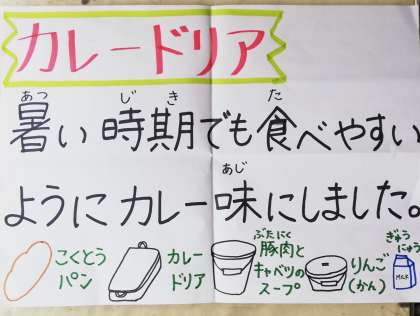 カレードリア
あつ じき た
暑い時期でも食べやすい
あじ
ようにカレー味にしました。
こくとう
パン
カレー
ドリア
ぶたにく
豚肉と
キャベツの
スープ
りんご
(かん)
ぎゅう
にゅう
MILK